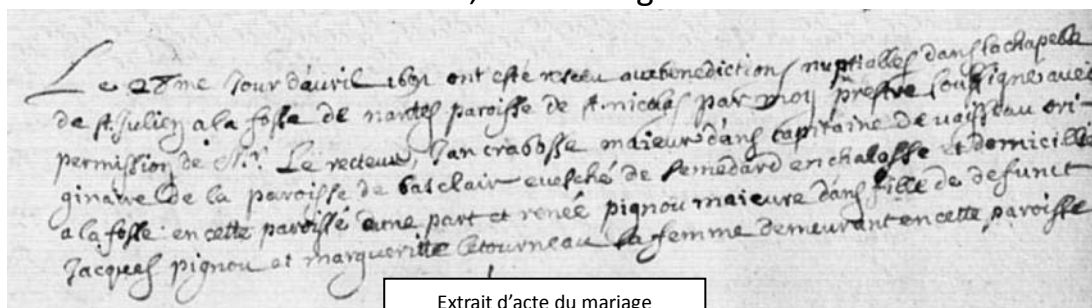 Le 28me Jour dauril 1691 ont esté resceu aux benediction nuptialles dans la chapelle
de st. Julien a la fosse de nantes paroisse de st. nicolas par moy prestre soussigne avec
permission de Mr. Le recteur, Jan crabosse maieur dans capitaine de vaisseau ori
ginaire de la paroisse de basclair evesché de semedard en chalosse et domicille
a la fosse en cette paroisse dune part et renée pignou maieure dans fille de defunct
Jacques pignou et margueritte letourneau sa femme demeurant en cette paroisse
Extrait d'acte du mariage